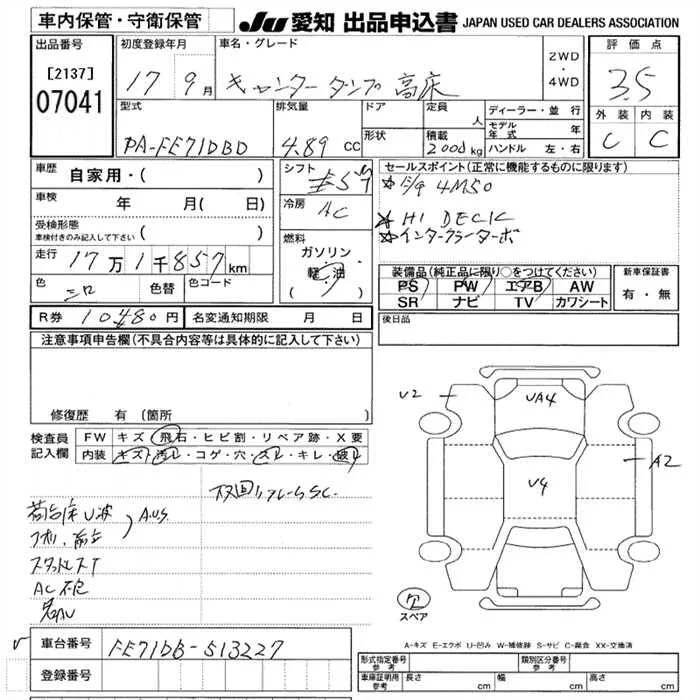 車内保管・守衛保管
JU 愛知 出品申込書 JAPAN USED CAR DEALERS ASSOCIATION
出品番号 初度登録年月 車名・グレード 評価点
[2137]
07041
17 9月 キャンターダンプ 高床 2WD・4WD 3.5
型式 排気量 ドア 定員 人 ディーラー・並行 外装 内装
モデル年式 年
PA-FE71DBD 4.89 cc 形状 積載 2000kg ハンドル 左・右 C C
車歴 自家用・( )
シフト 5
セールスポイント(正常に機能するものに限ります)
F/G 4M50
車検 年 月( 日)
冷房 AC
HI DECK
受検形態 車検付きのみ記入して下さい ( )
インタークーラーターボ
走行 17万1千857km
燃料 ガソリン 軽油 ( )
装備品(純正品に限り○をつけてください) 新車保証書
PS PW エアB AW 有・無
SR ナビ TV カワシート
色 シロ 色替 色コード
R券 10480円 名変通知期限 月 日
後日品
注意事項申告欄(不具合内容等は具体的に記入して下さい)
修復歴 有 (箇所
検査員記入欄 FW キズ・飛石・ヒビ割・リペア跡・X要
内装 キズ・汚レ・コゲ・穴・スレ・キレ・破レ
U2
UA4
A2
U4
荷台床U波
A.U.S
スタットレスT
AC不良
欠
スペア
A-キズ E-エクボ U-凹み W-補修跡 S-サビ C-腐食 XX-交換済
車台番号 FE71DB-513227
登録番号
形式指定番号 参考 類別区分番号
車庫証明用 参考 長さ cm 幅 cm 高さ cm